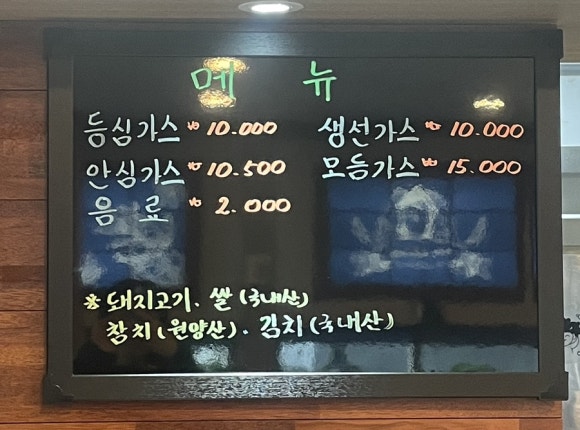 메 뉴
등심가스 ₩ 10.000 생선가스 ₩ 10.000
안심가스 ₩ 10.500 모듬가스 ₩ 15.000
음 료 ₩ 2.000
※ 돼지고기. 쌀 (국내산)
참치 (원양산). 김치 (국내산)